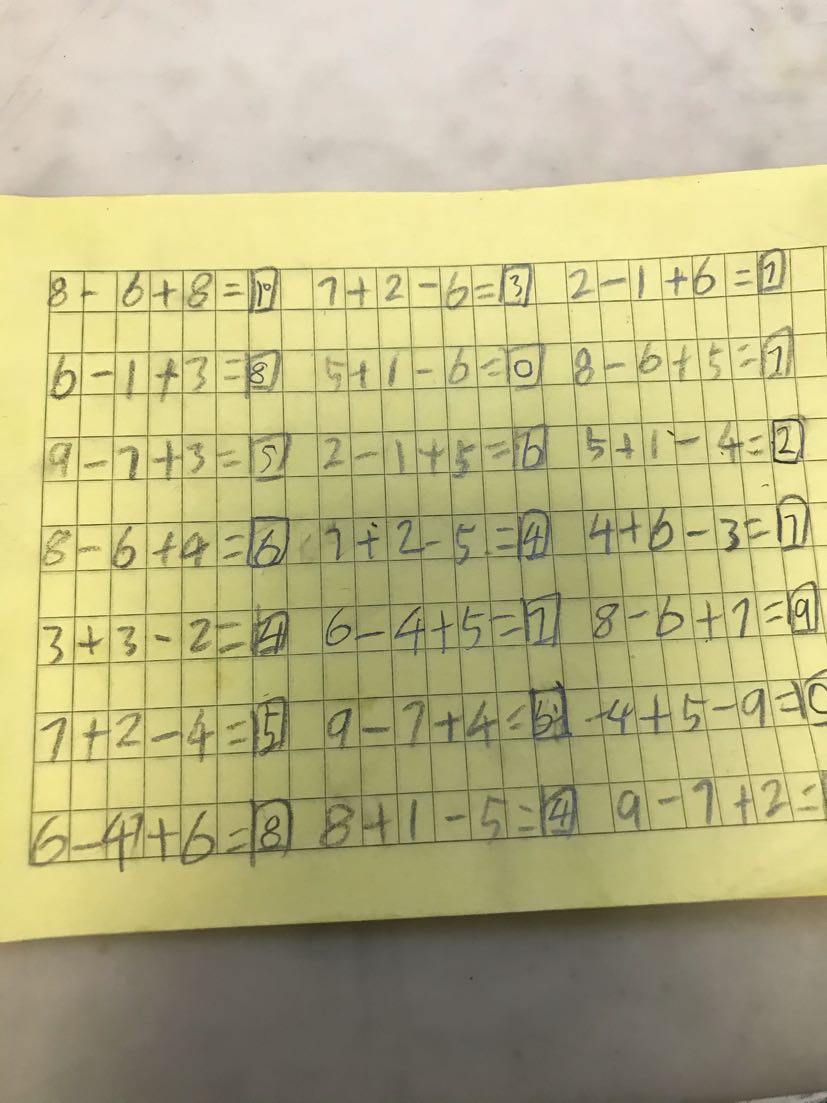 8-6+8=10 7+2-6=3 2-1+6=7
6-1+3=8 5+1-6=0 8-6+5=7
9-7+3=5 2-1+5=6 5+1-4=2
8-6+4=6 7+2-5=4 4+6-3=7
3+3-2=4 6-4+5=7 8-6+7=9
7+2-4=5 9-7+4=6 4+5-9=0
6-4+6=8 8+1-5=4 9-7+2=